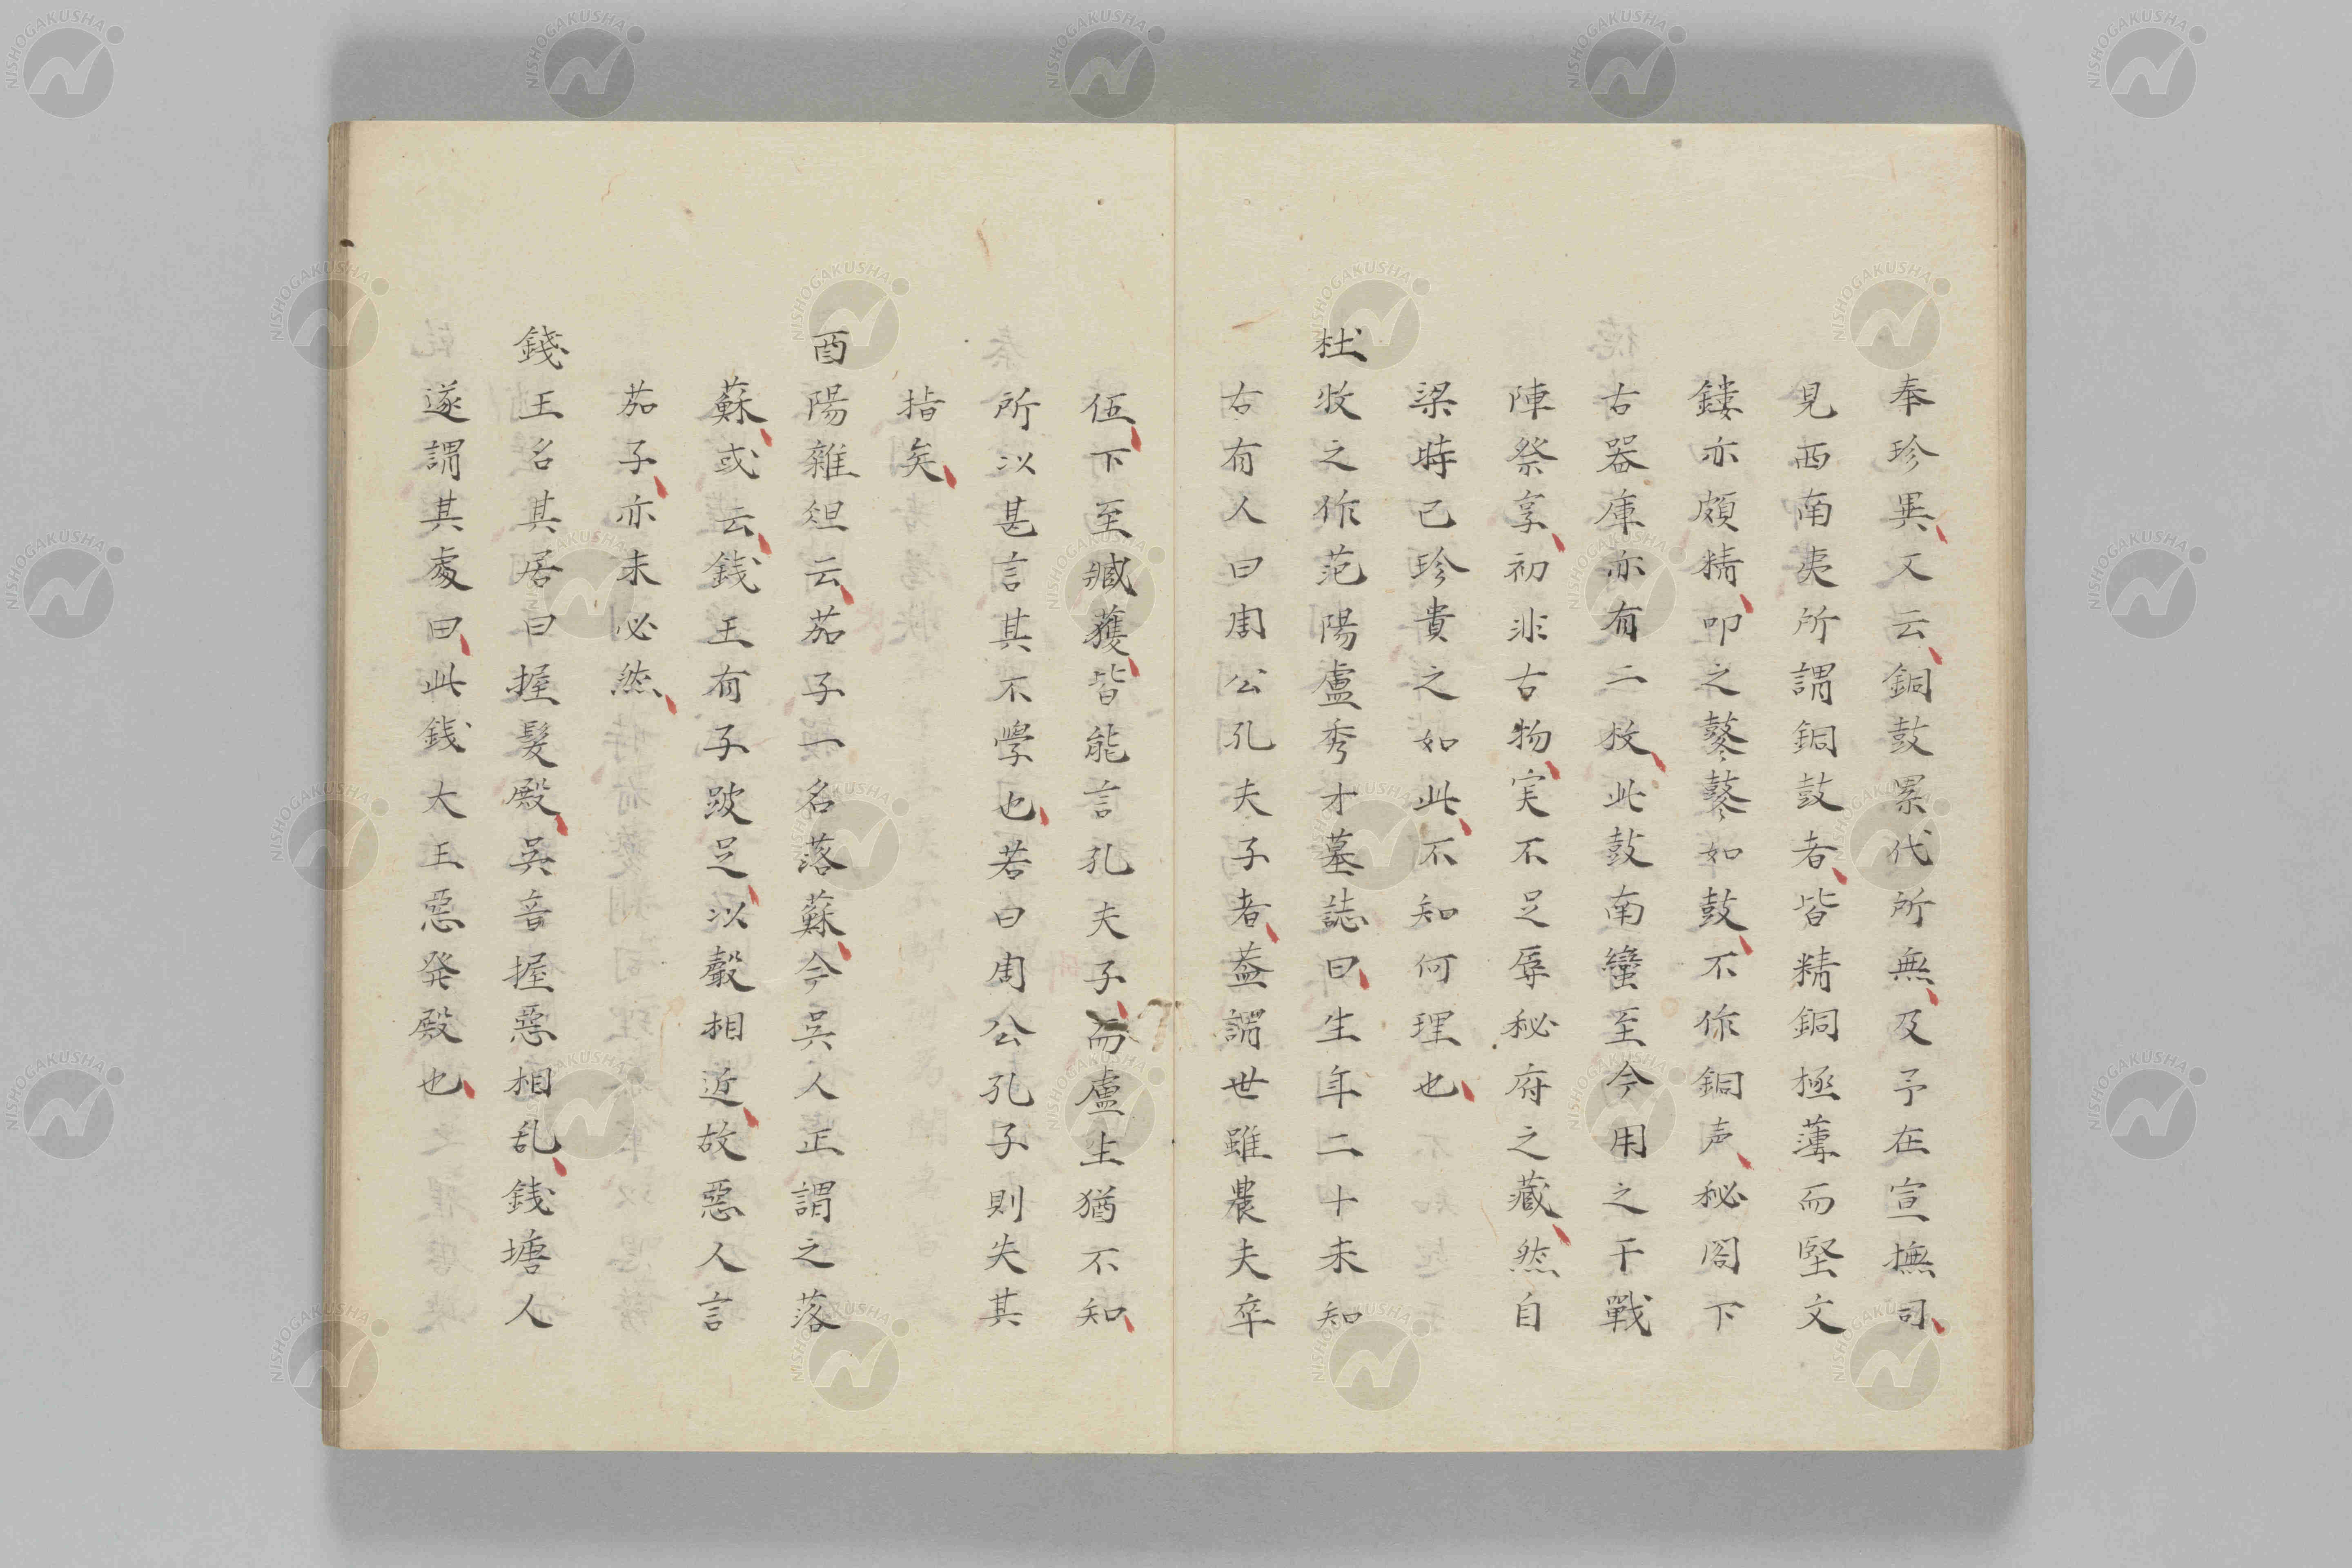 奉珍異又云銅鼓累代所無及予在宣撫司
見西南夷所謂銅鼓者皆精銅極薄而堅文
鏤亦頗精叩之鼕鼕如鼓不作銅声秘閣下
古器庫亦有二枚此鼓南蠻至今用之干戰
陣祭享初非古物実不足辱秘府之藏然自
梁時已珍貴之如此不知何理也
杜牧之作范陽盧秀才墓誌曰生年二十未知
右有人曰周公孔夫子者蓋謂世雖農夫卒
伍下至臧獲皆能言孔夫子而盧生猶不知
所以甚言其不學也若曰周公孔子則失其
指矣
酉陽雜俎云茄子一名落蘇今呉人正謂之落
蘇或云銭王有子跛足以聲相近故惡人言
茄子亦未必然
錢王名其居曰握髮殿呉音握惡相乱銭塘人
遂謂其處曰此銭大王惡発殿也
NISHOGAKUSHA